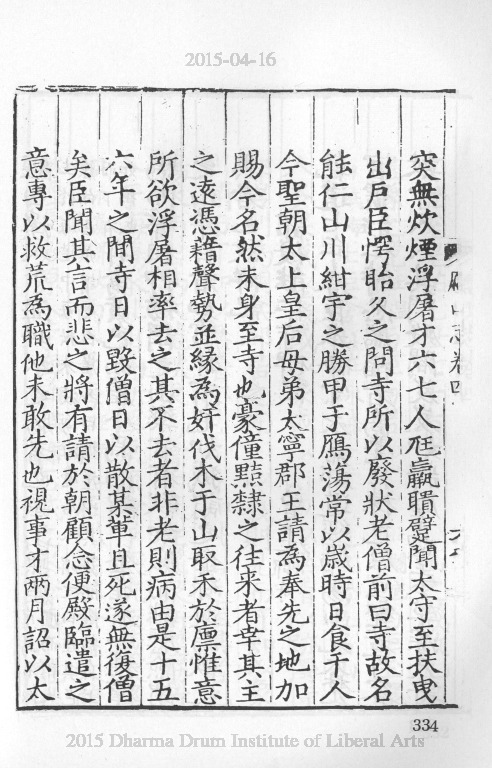 2015-04-16
突無炊煙浮屠才六七人尫羸聵躄聞太守至扶曳
出戶臣愕眙久之問寺所以廢狀老僧前曰寺故名
能仁山川紺宇之勝甲于鴈蕩常以歲時日食千人
今聖朝太上皇后母弟太寧郡王請為奉先之地加
賜今名然未身至寺也豪僮黠隸之往來者幸其主
之遠憑藉聲勢並緣為奸伐木于山取禾於廩惟意
所欲浮屠相率去之其不去者非老則病由是十五
六年之間寺日以毀僧日以散某輩且死遂無復僧
矣臣聞其言而悲之將有請於朝顧念便殿臨遣之
意專以救荒為職他未敢先也視事才兩月詔以太
334
2015 Dharma Drum Institute of Liberal Arts